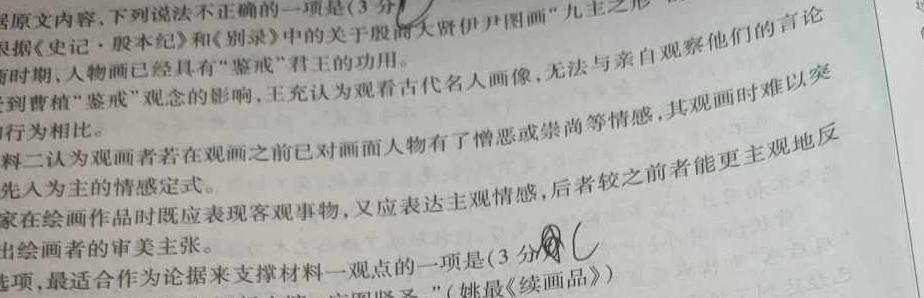 居原文内容,下列说法不正确的一项是(3分)
根据《史记·殷本纪》和《别录》中的关于殷商大贤伊尹图画“九主之形
商时期,人物画已经具有“鉴戒”君王的功用。
受到曹植“鉴戒”观念的影响,王充认为观看古代名人画像,无法与亲自观察他们的言论
行为相比。
料二认为观画者若在观画之前已对画面人物有了憎恶或崇尚等情感,其观画时难以突
先入为主的情感定式。
家在绘画作品时既应表现客观事物,又应表达主观情感,后者较之前者能更主观地反
出绘画者的审美主张。
选项,最适合作为论据来支撑材料一观点的一项是(3分 C
”(姚最《续画品》)